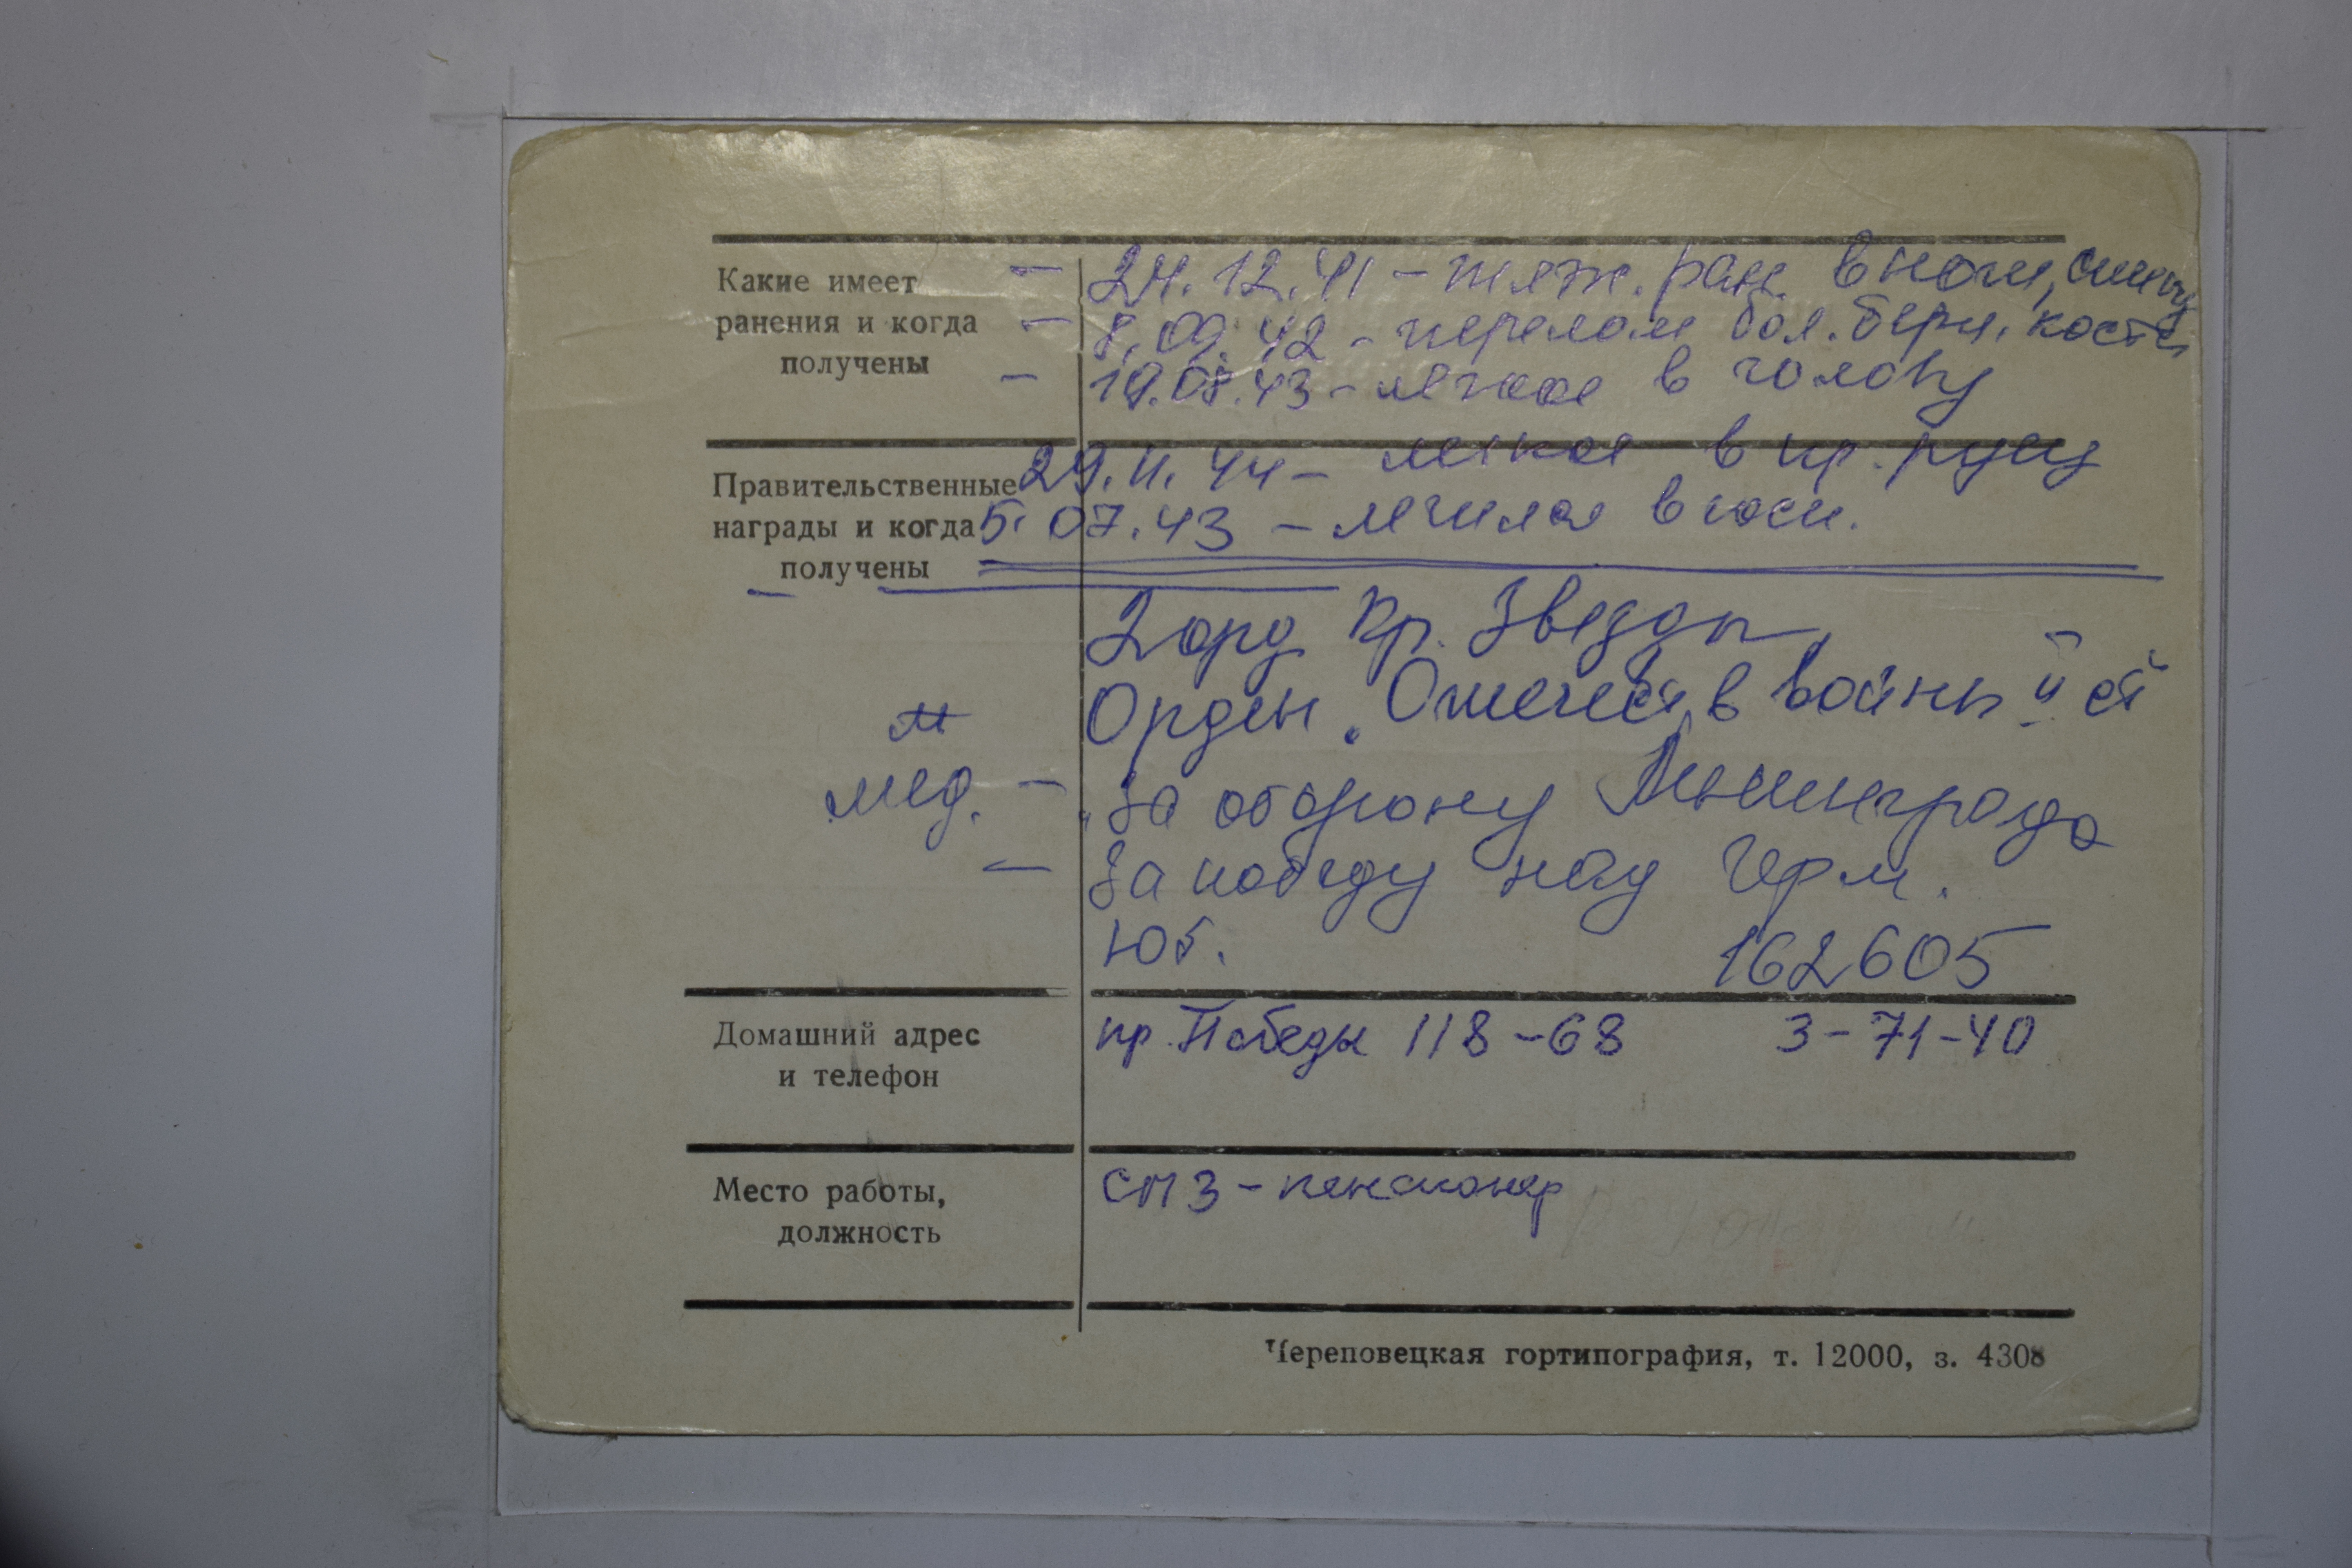 Какие имеет — 24.12.41 – тяж. ран. в ноги, спину
ранения и когда — 8.09.42 – перелом бол. берц. кости
получены — 19.08.43 – легкое в голову
29.11.44 – легкое в пр. руку
Правительственные
награды и когда 5.07.43 – лечился в госп.
получены
2 орд Кр. Звезды,
Орден „Отечеств войны II ст
мед. — „За оборону Ленинграда
— За победу над Герм.
Юб. 162605
Домашний адрес пр. Победы 118–68 3–71–40
и телефон
Место работы, СПЗ – пенсионер
должность
Череповецкая гортипография, т. 12000, з. 4308